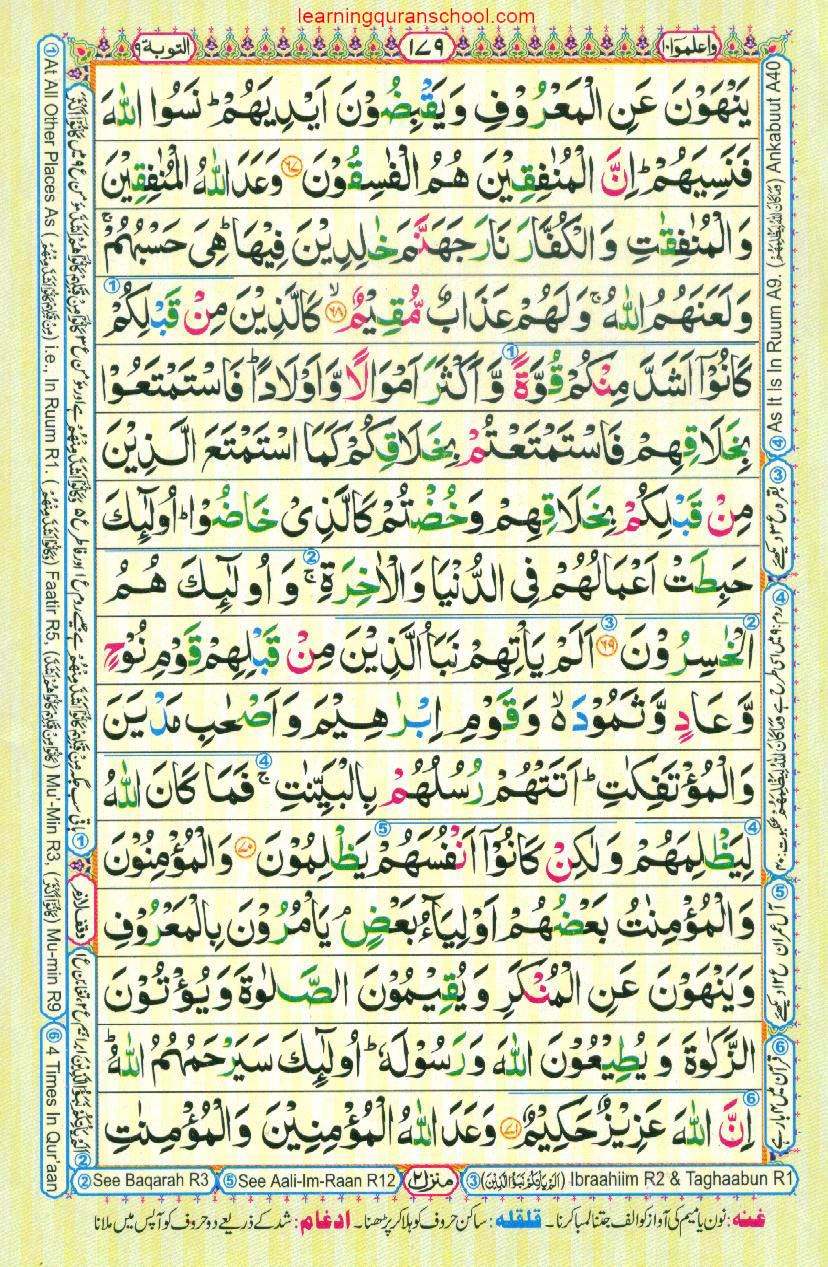 learningquranschool.com
واعلموا ١٠
١٧٩
التوبة ٩
يَنْهَوْنَ عَنِ الْمَعْرُوْفِ وَيَقْبِضُوْنَ اَيْدِيَهُمْ ؕ نَسُوا اللّٰهَ
فَنَسِيَهُمْ ؕ اِنَّ الْمُنٰفِقِيْنَ هُمُ الْفٰسِقُوْنَ ٦٧ وَعَدَ اللّٰهُ الْمُنٰفِقِيْنَ
وَالْمُنٰفِقٰتِ وَالْكُفَّارَ نَارَ جَهَنَّمَ خٰلِدِيْنَ فِيْهَا ؕ هِيَ حَسْبُهُمْ ۚ
وَلَعَنَهُمُ اللّٰهُ ۚ وَلَهُمْ عَذَابٌ مُّقِيْمٌ ۙ ٦٨ كَالَّذِيْنَ مِنْ قَبْلِكُمْ
كَانُوْۤا اَشَدَّ مِنْكُمْ قُوَّةً وَّاَكْثَرَ اَمْوَالًا وَّاَوْلَادًا ؕ فَاسْتَمْتَعُوْا
بِخَلَاقِهِمْ فَاسْتَمْتَعْتُمْ بِخَلَاقِكُمْ كَمَا اسْتَمْتَعَ الَّذِيْنَ
مِنْ قَبْلِكُمْ بِخَلَاقِهِمْ وَخُضْتُمْ كَالَّذِيْ خَاضُوْا ؕ اُولٰٓئِكَ
حَبِطَتْ اَعْمَالُهُمْ فِي الدُّنْيَا وَالْاٰخِرَةِ ۚ وَاُولٰٓئِكَ هُمُ
الْخٰسِرُوْنَ ٦٩ اَلَمْ يَاْتِهِمْ نَبَاُ الَّذِيْنَ مِنْ قَبْلِهِمْ قَوْمِ نُوْحٍ
وَّعَادٍ وَّثَمُوْدَ ۙ وَقَوْمِ اِبْرٰهِيْمَ وَاَصْحٰبِ مَدْيَنَ
وَالْمُؤْتَفِكٰتِ ؕ اَتَتْهُمْ رُسُلُهُمْ بِالْبَيِّنٰتِ ۚ فَمَا كَانَ اللّٰهُ
لِيَظْلِمَهُمْ وَلٰكِنْ كَانُوْۤا اَنْفُسَهُمْ يَظْلِمُوْنَ ٧٠ وَالْمُؤْمِنُوْنَ
وَالْمُؤْمِنٰتُ بَعْضُهُمْ اَوْلِيَآءُ بَعْضٍ ۘ يَاْمُرُوْنَ بِالْمَعْرُوْفِ
وَيَنْهَوْنَ عَنِ الْمُنْكَرِ وَيُقِيْمُوْنَ الصَّلٰوةَ وَيُؤْتُوْنَ
الزَّكٰوةَ وَيُطِيْعُوْنَ اللّٰهَ وَرَسُوْلَهٗ ؕ اُولٰٓئِكَ سَيَرْحَمُهُمُ اللّٰهُ ؕ
اِنَّ اللّٰهَ عَزِيْزٌ حَكِيْمٌ ٧١ وَعَدَ اللّٰهُ الْمُؤْمِنِيْنَ وَالْمُؤْمِنٰتِ
④ As It Is In Ruum A9. Ankabuut A40
① At All Other Places As i.e., In Ruum R1. Faatir R5, Mu'-Min R3, Mu-min R9
⑥ 4 Times In Qur'aan
② See Baqarah R3
⑤ See Aali-Im-Raan R12
منزل ٢
③ Ibraahiim R2 & Taghaabun R1
غنه: نون یا میم کی آواز کو الف جتنا لمبا کرنا۔ قلقله: ساکن حروف کو ہلا کر پڑھنا۔ ادغام: شد کے ذریعے دو حروف کو آپس میں ملانا